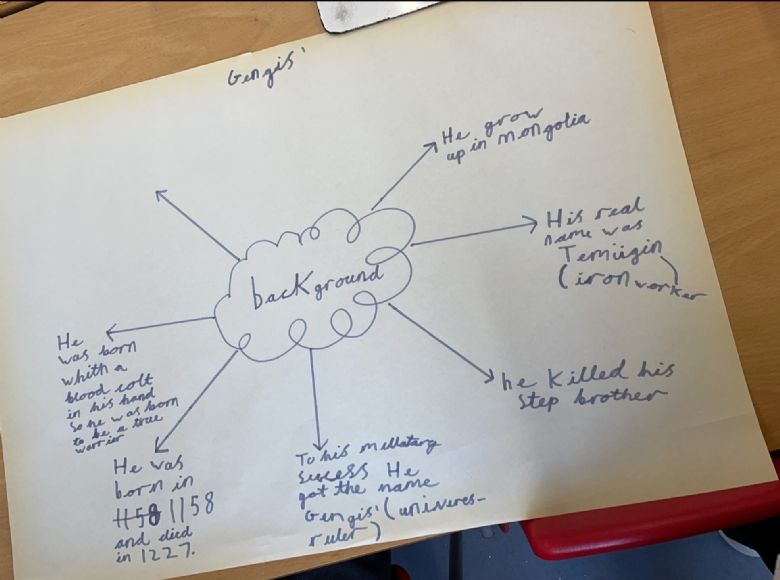 Gengis'
He grow
up in mongolia
His real
name was
Temügin
(iron worker
background
he killed his
step brother
He
was born
whith a
blood colt
in his hand
so he was born
to be a true
warrier
He was
born in
1158 1158
and died
in 1227.
To his millatary
sucess He
got the name
Gengis' (univeres-
ruler)